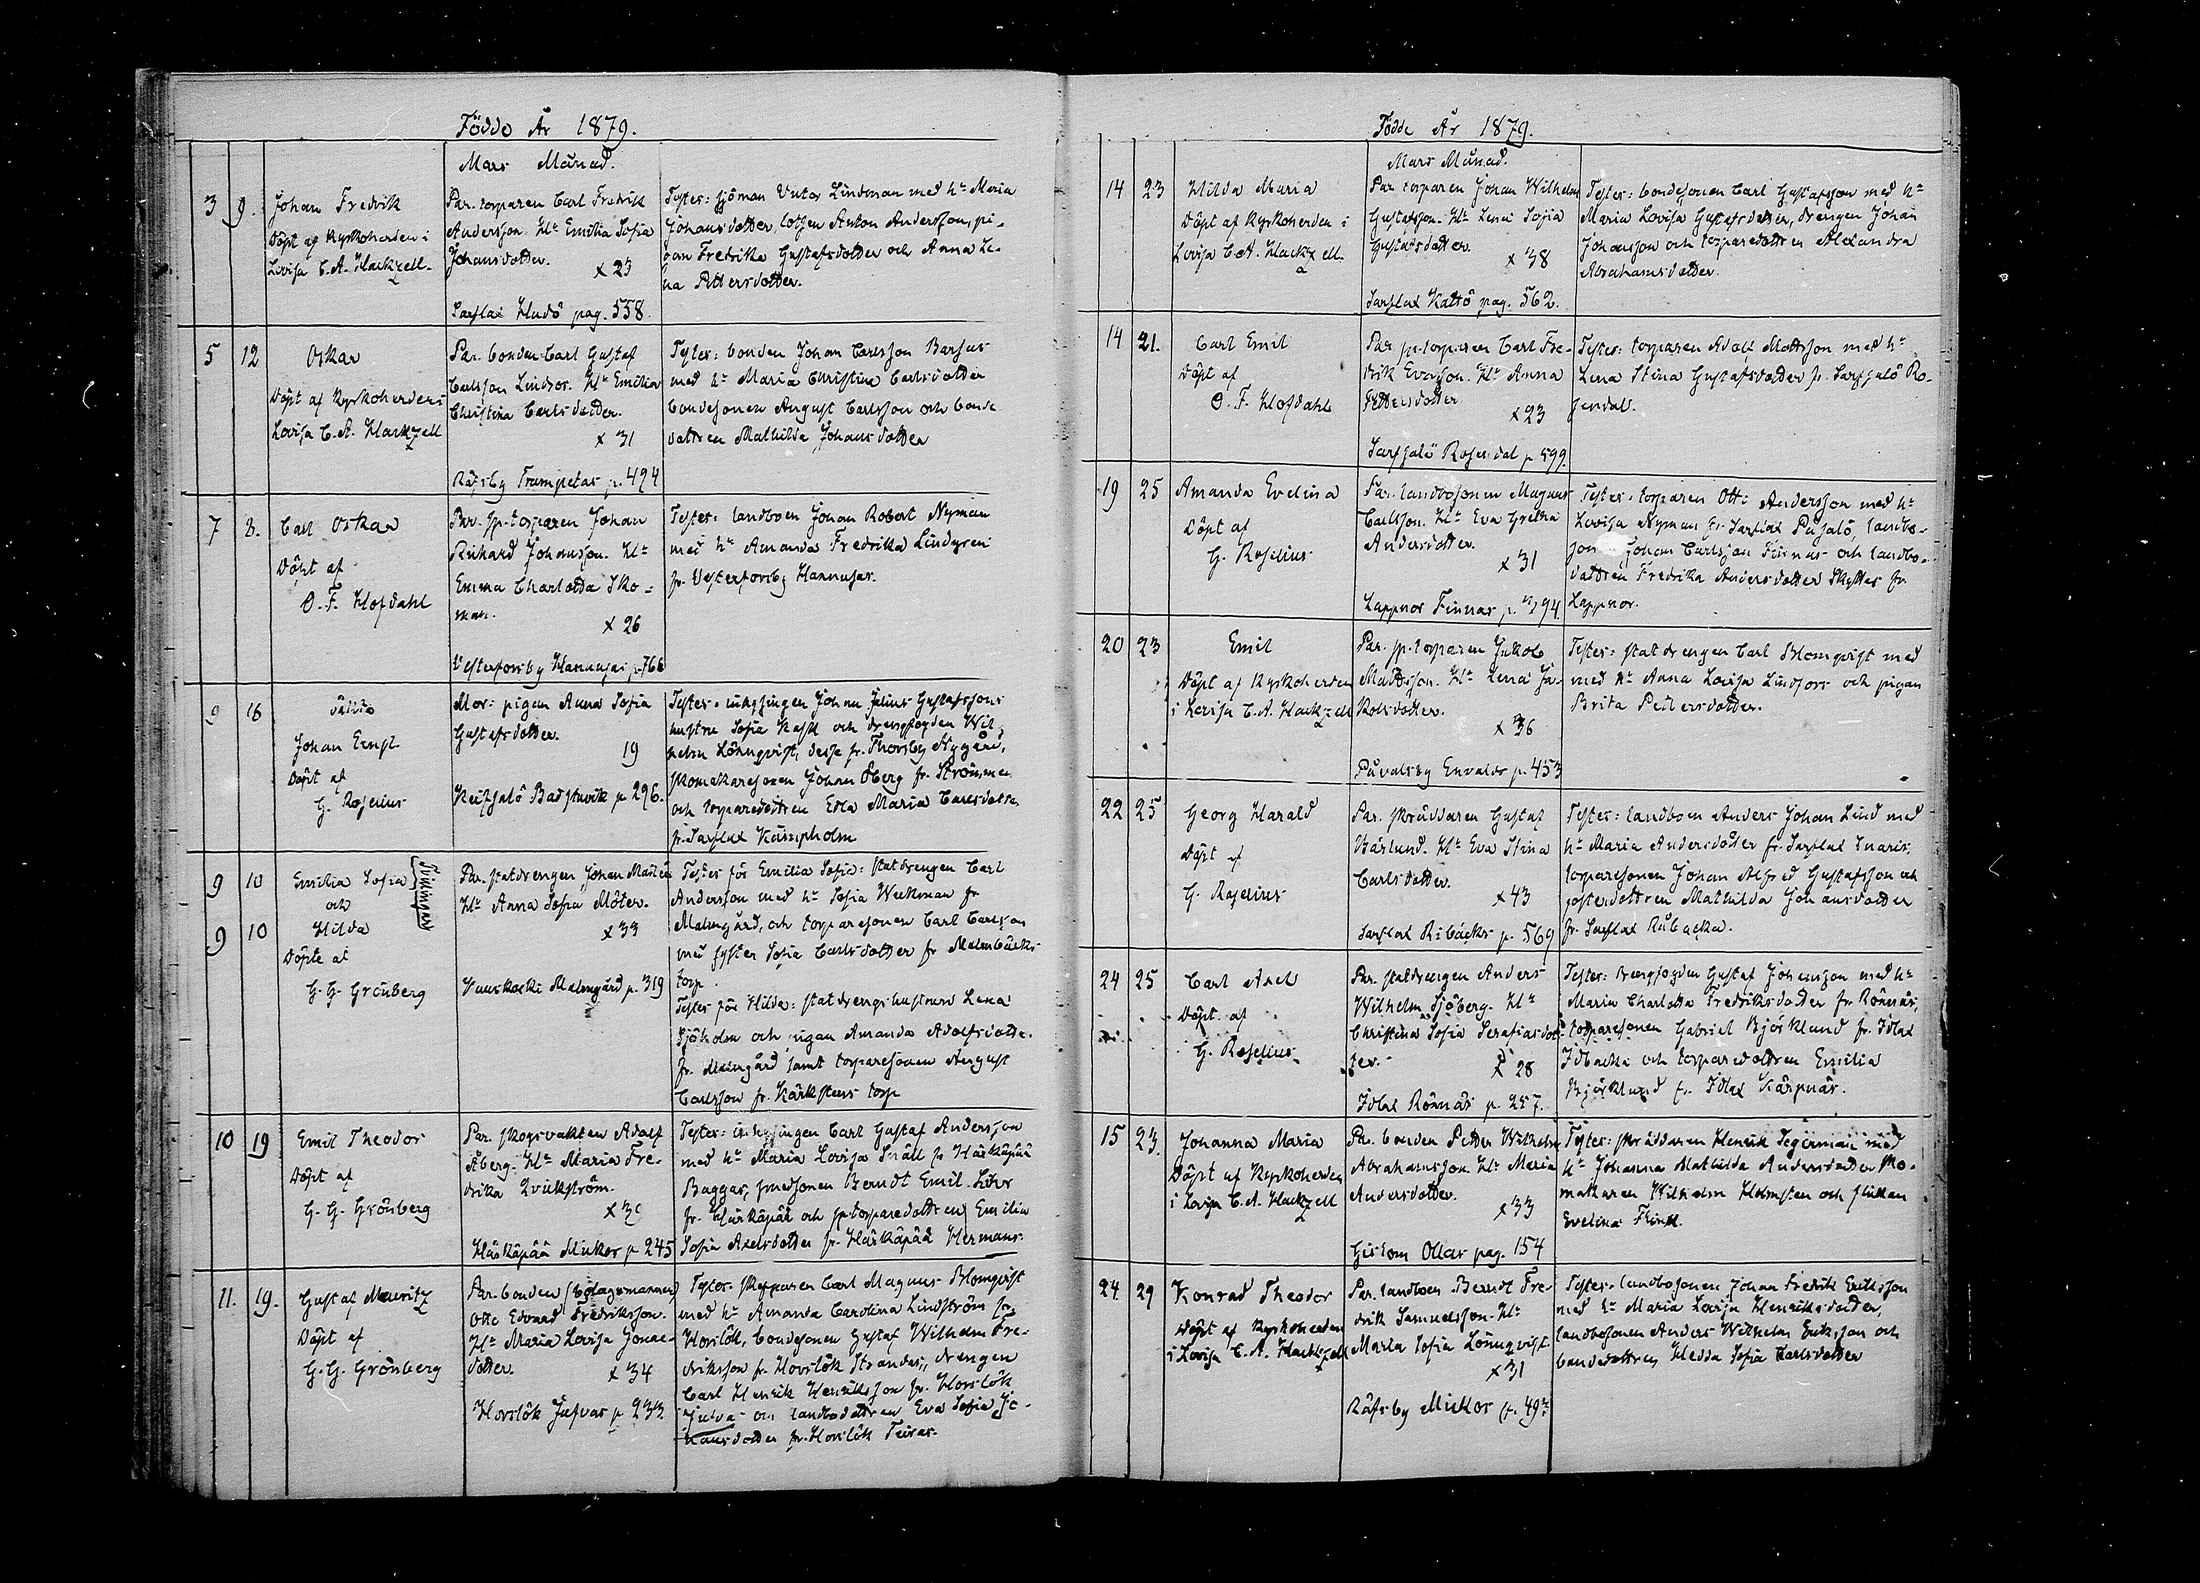 Födde År 1879.
Mars Månad.
3 9. Johan Fredrik
Döpt af Kyrkoherden i
Lovisa C. A. Hackzell.
Par. torparen Carl Fredrik
Andersson. H:u Emilia Sofia
Johansdotter.
x 23
Sarflax Hudö pag. 558.
Tester: sjöman Victor Lindman med h:u Maria
Johansdotter, lotsen Anton Andersson, pi-
gan Fredrika Gustafsdotter och Anna Le-
na Pettersdotter.
5 12 Oskar
Döpt af Kyrkoherden i
Lovisa C. A. Hackzell
Par. bonden Carl Gustaf
Carlsson Lindros. H:u Emilia
Christina Carlsdotter.
x 31
Räfsby Trumpetas p. 494
Tester: bonden Johan Carlsson Barsas
med h:u Maria Christina Carlsdotter
bondesonen August Carlsson och bonde
dottren Mathilda Johansdotter
7 8. Carl Oskar
Döpt af
O. F. Hofdahl
Par. sp-torparen Johan
Richard Johansson. H:u
Emma Charlotta Sko-
man.
x 26
Vesterforsby Hannusas p. 766
Tester: landboen Johan Robert Nyman
med h:u Amanda Fredrika Lindgren
fr. Vesterforsby Hannusas.
9 16 oäkta
Johan Ernst
Döpt af
G. Roselius
Mor: pigan Anna Sofia
Gustafsdotter.
19
Keitsalö Badstuvik p 296.
Tester: inhysingen Johan Julius Gustafssons
hustru Sofia Rask och drengfogden Wil-
helm Lönnqvist, desse fr. Thorsby Nygård,
skomakaresonen Johan Öberg fr. Strömme
och torparedottren Edla Maria Carlsdotter
fr. Sarflax Kämpholm
9 10 Emilia Sofia
och
9 10 Hilda
Tvillingar
Döpte af
G. G. Grönberg
Par. statdrengen Johan Malén
H:u Anna Sofia Moter.
x 33
Kuuskoski Malmgård p. 319
Tester för Emilia Sofia: statdrengen Carl
Andersson med h:u Sofia Weckman fr
Malmgård, och torparesonen Carl Carlsson
med syster Sofia Carlsdotter fr Malmbäcks
torp.
Tester för Hilda: statdrengshustrun Lena
Sjöholm och pigan Amanda Adolfsdotte.
fr. Malmgård samt torparesonen August
Carlsson fr. Kärkstens torp
10 19 Emil Theodor
Döpt af
G. G. Grönberg
Par. skogsvakten Adolf
Åberg. H:u Maria Fre-
drika Qvickström.
Härkäpää Mickos p 245
Tester: inhysingen Carl Gustaf Andersson
med h:u Maria Lovisa Snäll fr Härkäpää
Baggas, smedsonen Berndt Emil Lönn
fr. Härkäpää och sp-torparedottren Emilia
Sofia Axelsdotter fr. Härkäpää Hermans.
11. 19. Gustaf Mauritz
Döpt af
G. G. Grönberg
Par. bonden (bolagsmannen)
Otto Edvard Fredriksson.
H:u Maria Lovisa Jonae-
dotter.
x 34
Horslök Jusvas p 233.
Tester: skepparen Carl Magnus Blomqvist
med h:u Amanda Carolina Lindström fr.
Horslök, bondesonen Gustaf Wilhelm Fre-
driksson fr. Horslök Strandas, drengen
Carl Henrik Henriksson fr. Horslök
Jusvas och landbodottren Eva Sofia Jo-
hansdotter fr. Horslök
Födde År 1879.
Mars Månad.
14 23 Hilda Maria
Döpt af Kyrkoherden i
Lovisa C. A. Hackzell.
Par torparen Johan Wilhelm
Gustafsson. H:u Lena Sofia
Gustafsdotter.
x 38
Sarflax Kattö pag. 562.
Tester: bondesonen Carl Gustafsson med h:u
Maria Lovisa Gustafsdotter, drengen Johan
Johansson och torparedottren Alexandra
Abrahamsdotter.
14 21. Carl Emil
Döpt af
O. F. Hofdahl
Par sp-torparen Carl Fre-
drik Evasson. H:u Anna
Pettersdotter
x 23
Sarfsalö Rosendal p 599.
Tester: torparen Adolf Mattsson med h:u
Lena Stina Gustafsdotter fr. Sarfsalö Ro-
sendal.
19 25 Amanda Evelina
Döpt af
G. Roselius
Par. landbosonen Magnus
Carlsson. H:u Eva Gretha
Andersdotter.
x 31
Lappnor Finnas p. 794.
Tester: torparen Otto Andersson med h:u
Lovisa Nyman fr. Sarflax Påsalö, landbo-
son Johan Carlsson Finnas och landbo-
dottren Fredrika Andersdotter Skyttas fr.
Lappnor.
20 23 Emil
Döpt af Kyrkoherden
i Lovisa C. A. Hackzell
Par. sp-torparen Jakob
Mattsson. H:u Lena Ja-
kobsdotter.
x 36
Påvalsby Envalds p. 453
Tester: statdrengen Carl Blomqvist med
med h:u Anna Lovisa Lindfors och pigan
Brita Pettersdotter.
22 25 Georg Harald
Döpt af
G. Roselius
Par. skräddaren Gustaf
Bärlund. H:u Eva Stina
Carlsdotter.
x 43
Sarflax Ribäcks p. 569
Tester: landboen Anders Johan Lind med
h:u Maria Andersdotter fr. Sarflax Snaris,
torparesonen Johan Alfred Gustafsson och
fosterdottren Mathilda Johansdotter
fr. Sarflax Råbacka.
24 25 Carl Axel
Döpt af
G. Roselius
Par. statdrengen Anders
Wilhelm Sjöberg. H:u
Christina Sofia Serafiasdot-
ter.
x 28
Idlax Rönnäs p. 257.
Tester: drengfogden Gustaf Johansson med h:u
Maria Charlotta Fredriksdotter fr. Rönnäs,
torparesonen Gabriel Björklund fr. Idlax
Idbacka och torparedottren Emilia
Björklund fr. Idlax Kärpnäs.
15 23. Johanna Maria
Döpt af Kyrkoherden
i Lovisa C. A. Hackzell
Par. bonden Petter Wilhelm
Abrahamsson H:u Maria
Andersdotter.
x 33
Gislom Ollas pag. 154
Tester: skräddaren Henrik Segerman med
h:u Johanna Mathilda Andersdotter sko-
makaren Wilhelm Holmsten och flickan
Evelina Flink.
24 29 Konrad Theodor
Döpt af Kyrkoherden
i Lovisa C. A. Hackzell
Par. landboen Berndt Fre-
drik Samuelsson. H:u
Maria Sofia Lönnqvist.
x 31
Räfsby Mickos p. 492
Tester: landbosonen Johan Fredrik Eriksson
med h:u Maria Lovisa Henriksdotter,
landbosonen Anders Wilhelm Eriksson och
bondedottren Hedda Sofia Karlsdotter